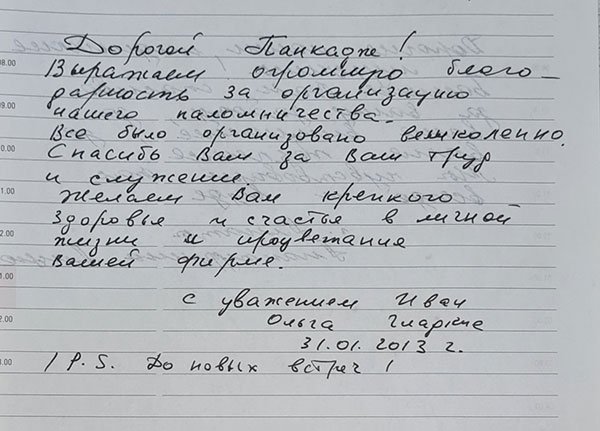 Дорогой Панкадже!
Выражаем огромную благо-
дарность за организацию
нашего паломничества.
Все было организовано великолепно.
Спасибо Вам за Ваш труд
и служение.
Желаем Вам крепкого
здоровья и счастья в личной
жизни и процветания
Вашей фирме.
С уважением Иван
Ольга
31.01.2013 г.
P.S. До новых встреч!